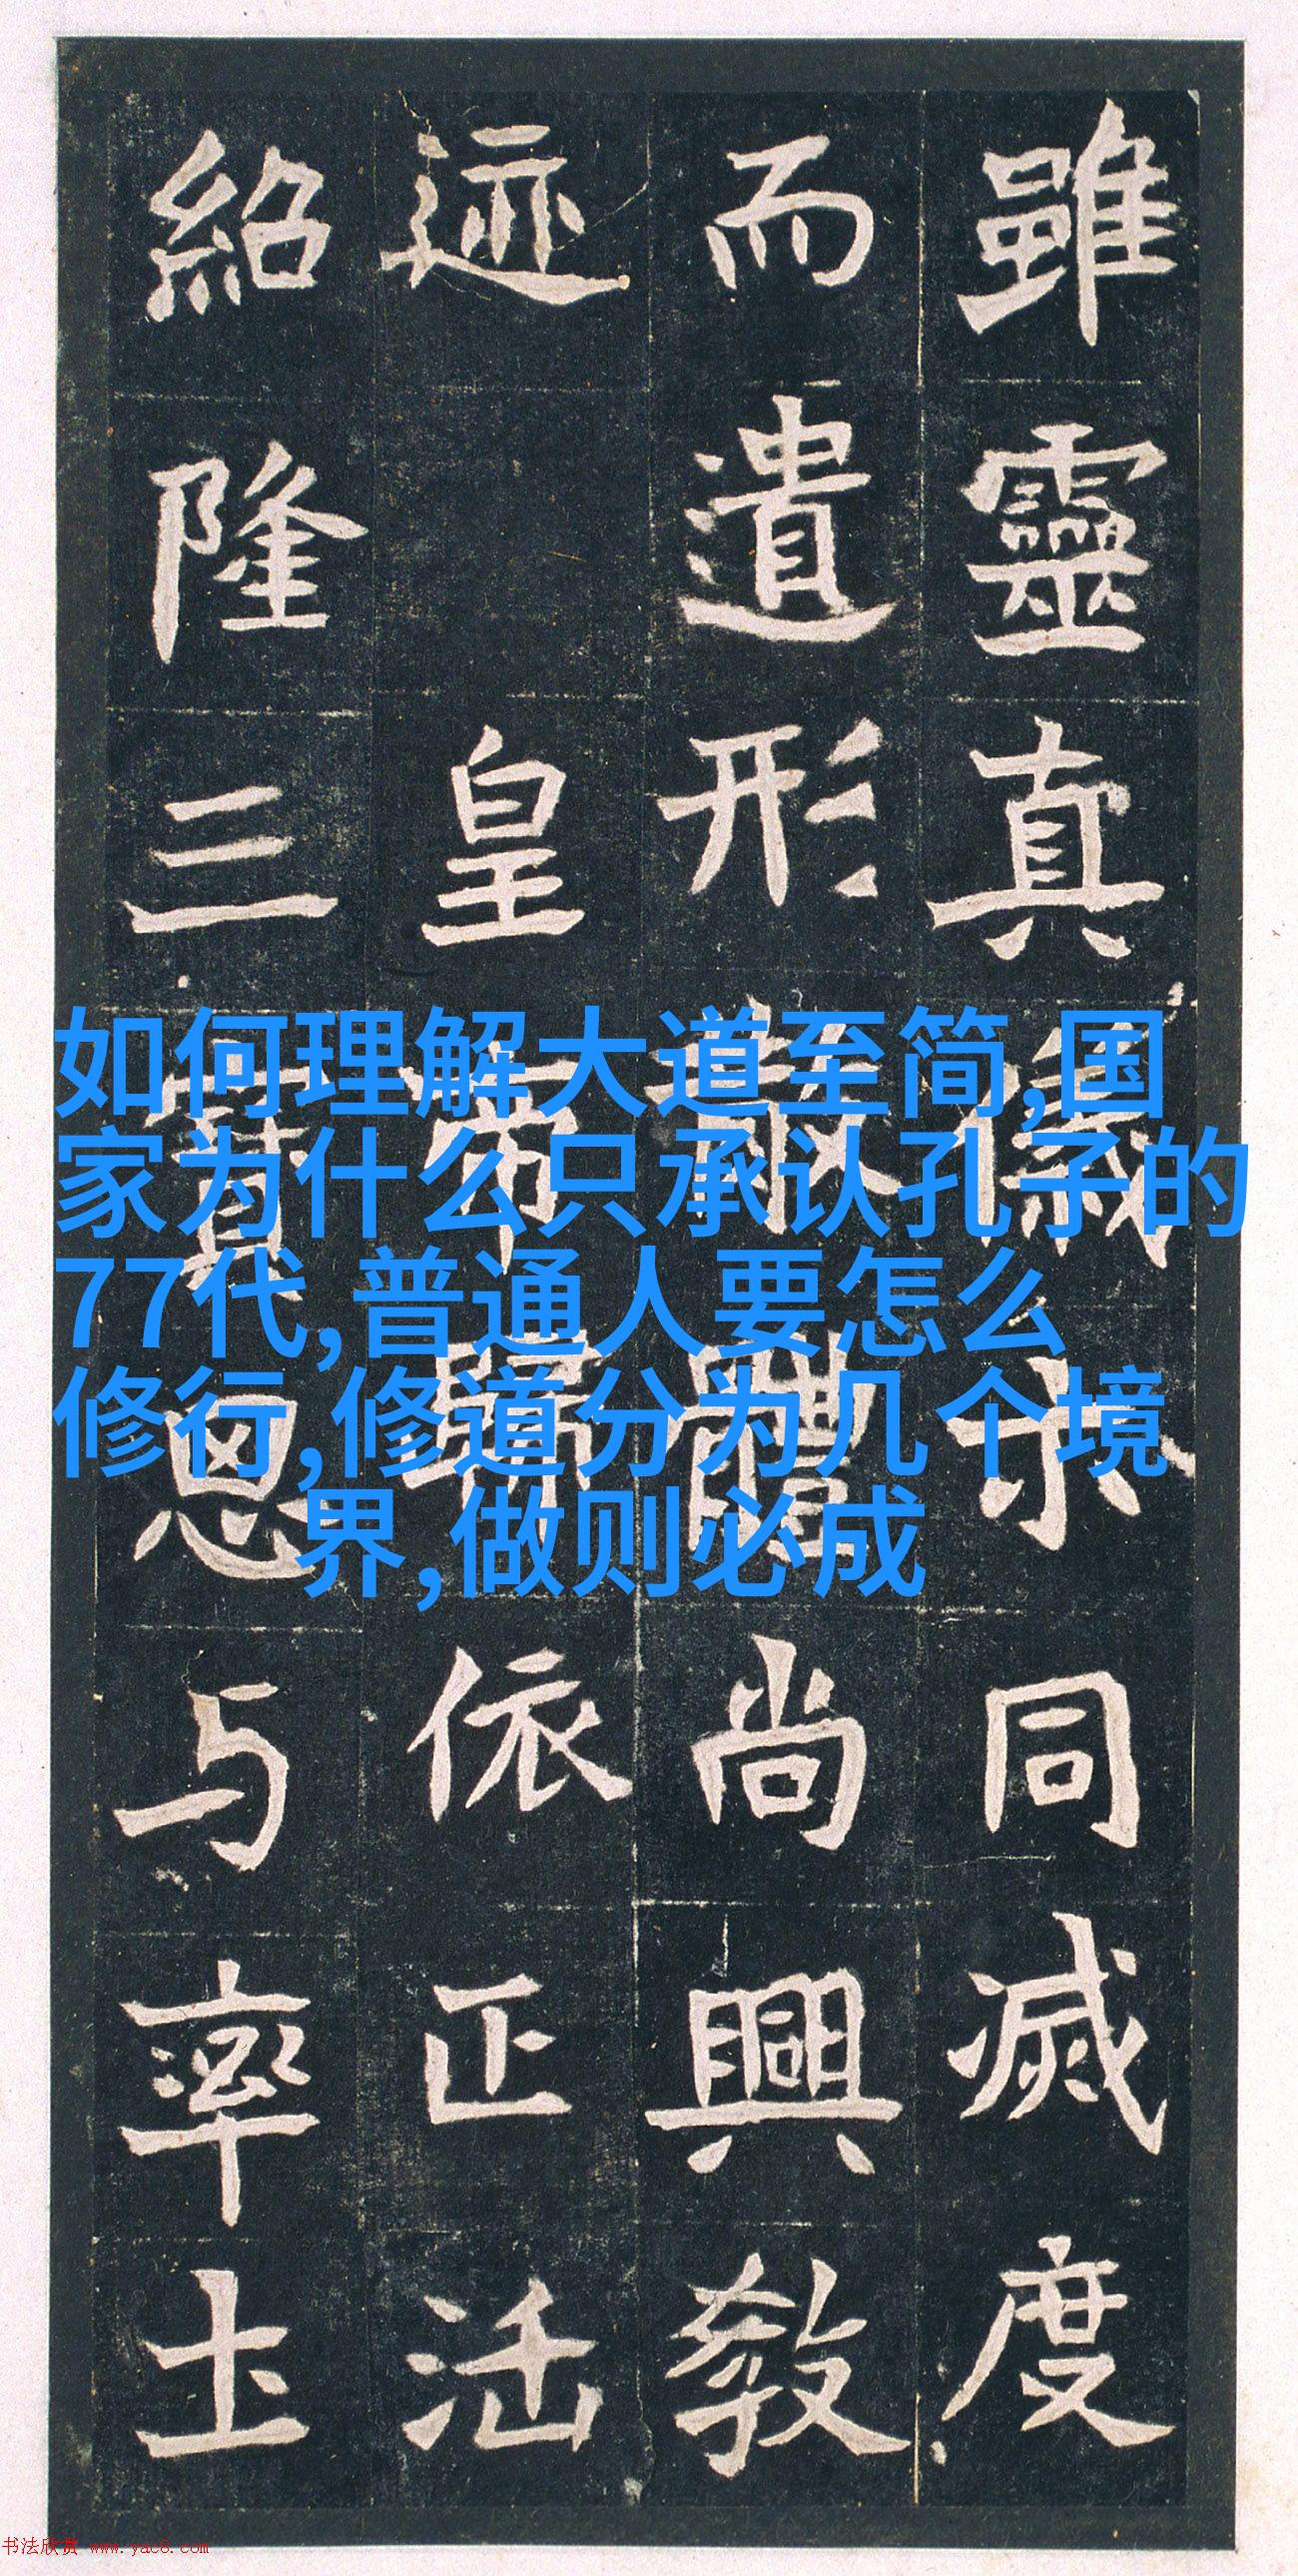 雖靈真儀同滅度
而遺形散體尚興教
迹 皇帝歸依正法
紹隆三寶思与率土
如何理解大道至简,国
家为什么只承认孔子的
77代,普通人要怎么
修行,修道分为几个境
界,做则必成
书法欣赏 www.yac8.com